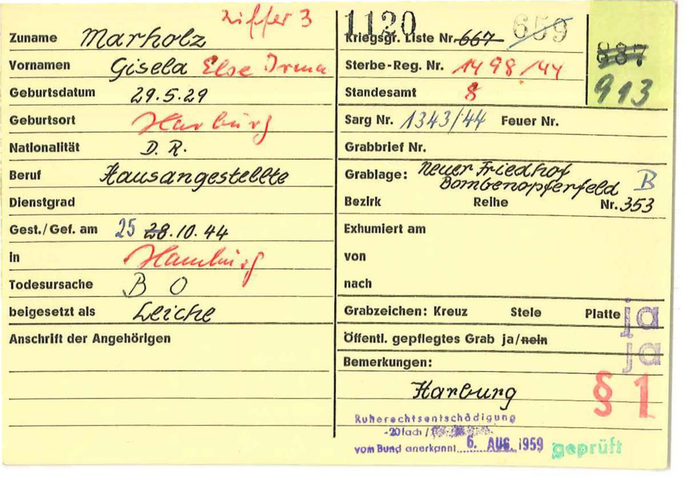 Ziffer 3
Zuname Marholz
Vornamen Gisela Else Irma
Geburtsdatum 29.5.29
Geburtsort Harburg
Nationalität D. R.
Beruf Hausangestellte
Dienstgrad
Gest./Gef. am 25 28.10.44
in Hamburg
Todesursache B O
beigesetzt als Leiche
Anschrift der Angehörigen
1120 659
Kriegsgr. Liste Nr. 667
887
913
Sterbe-Reg. Nr. 1498/44
Standesamt 8
Sarg Nr. 1343/44 Feuer Nr.
Grabbrief Nr.
Grablage: Neuer Friedhof
Bombenopferfeld B
Bezirk Reihe Nr. 353
Exhumiert am
von
nach
Grabzeichen: Kreuz Stele Platte ja
Öffentl. gepflegtes Grab ja/nein ja
Bemerkungen:
Harburg § 1
Ruherechtsentschädigung
-20fach /
vom Bund anerkannt 6. AUG. 1959 geprüft